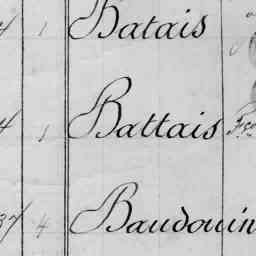 1 Batais
4 1 Battais
37 4 Baudouin